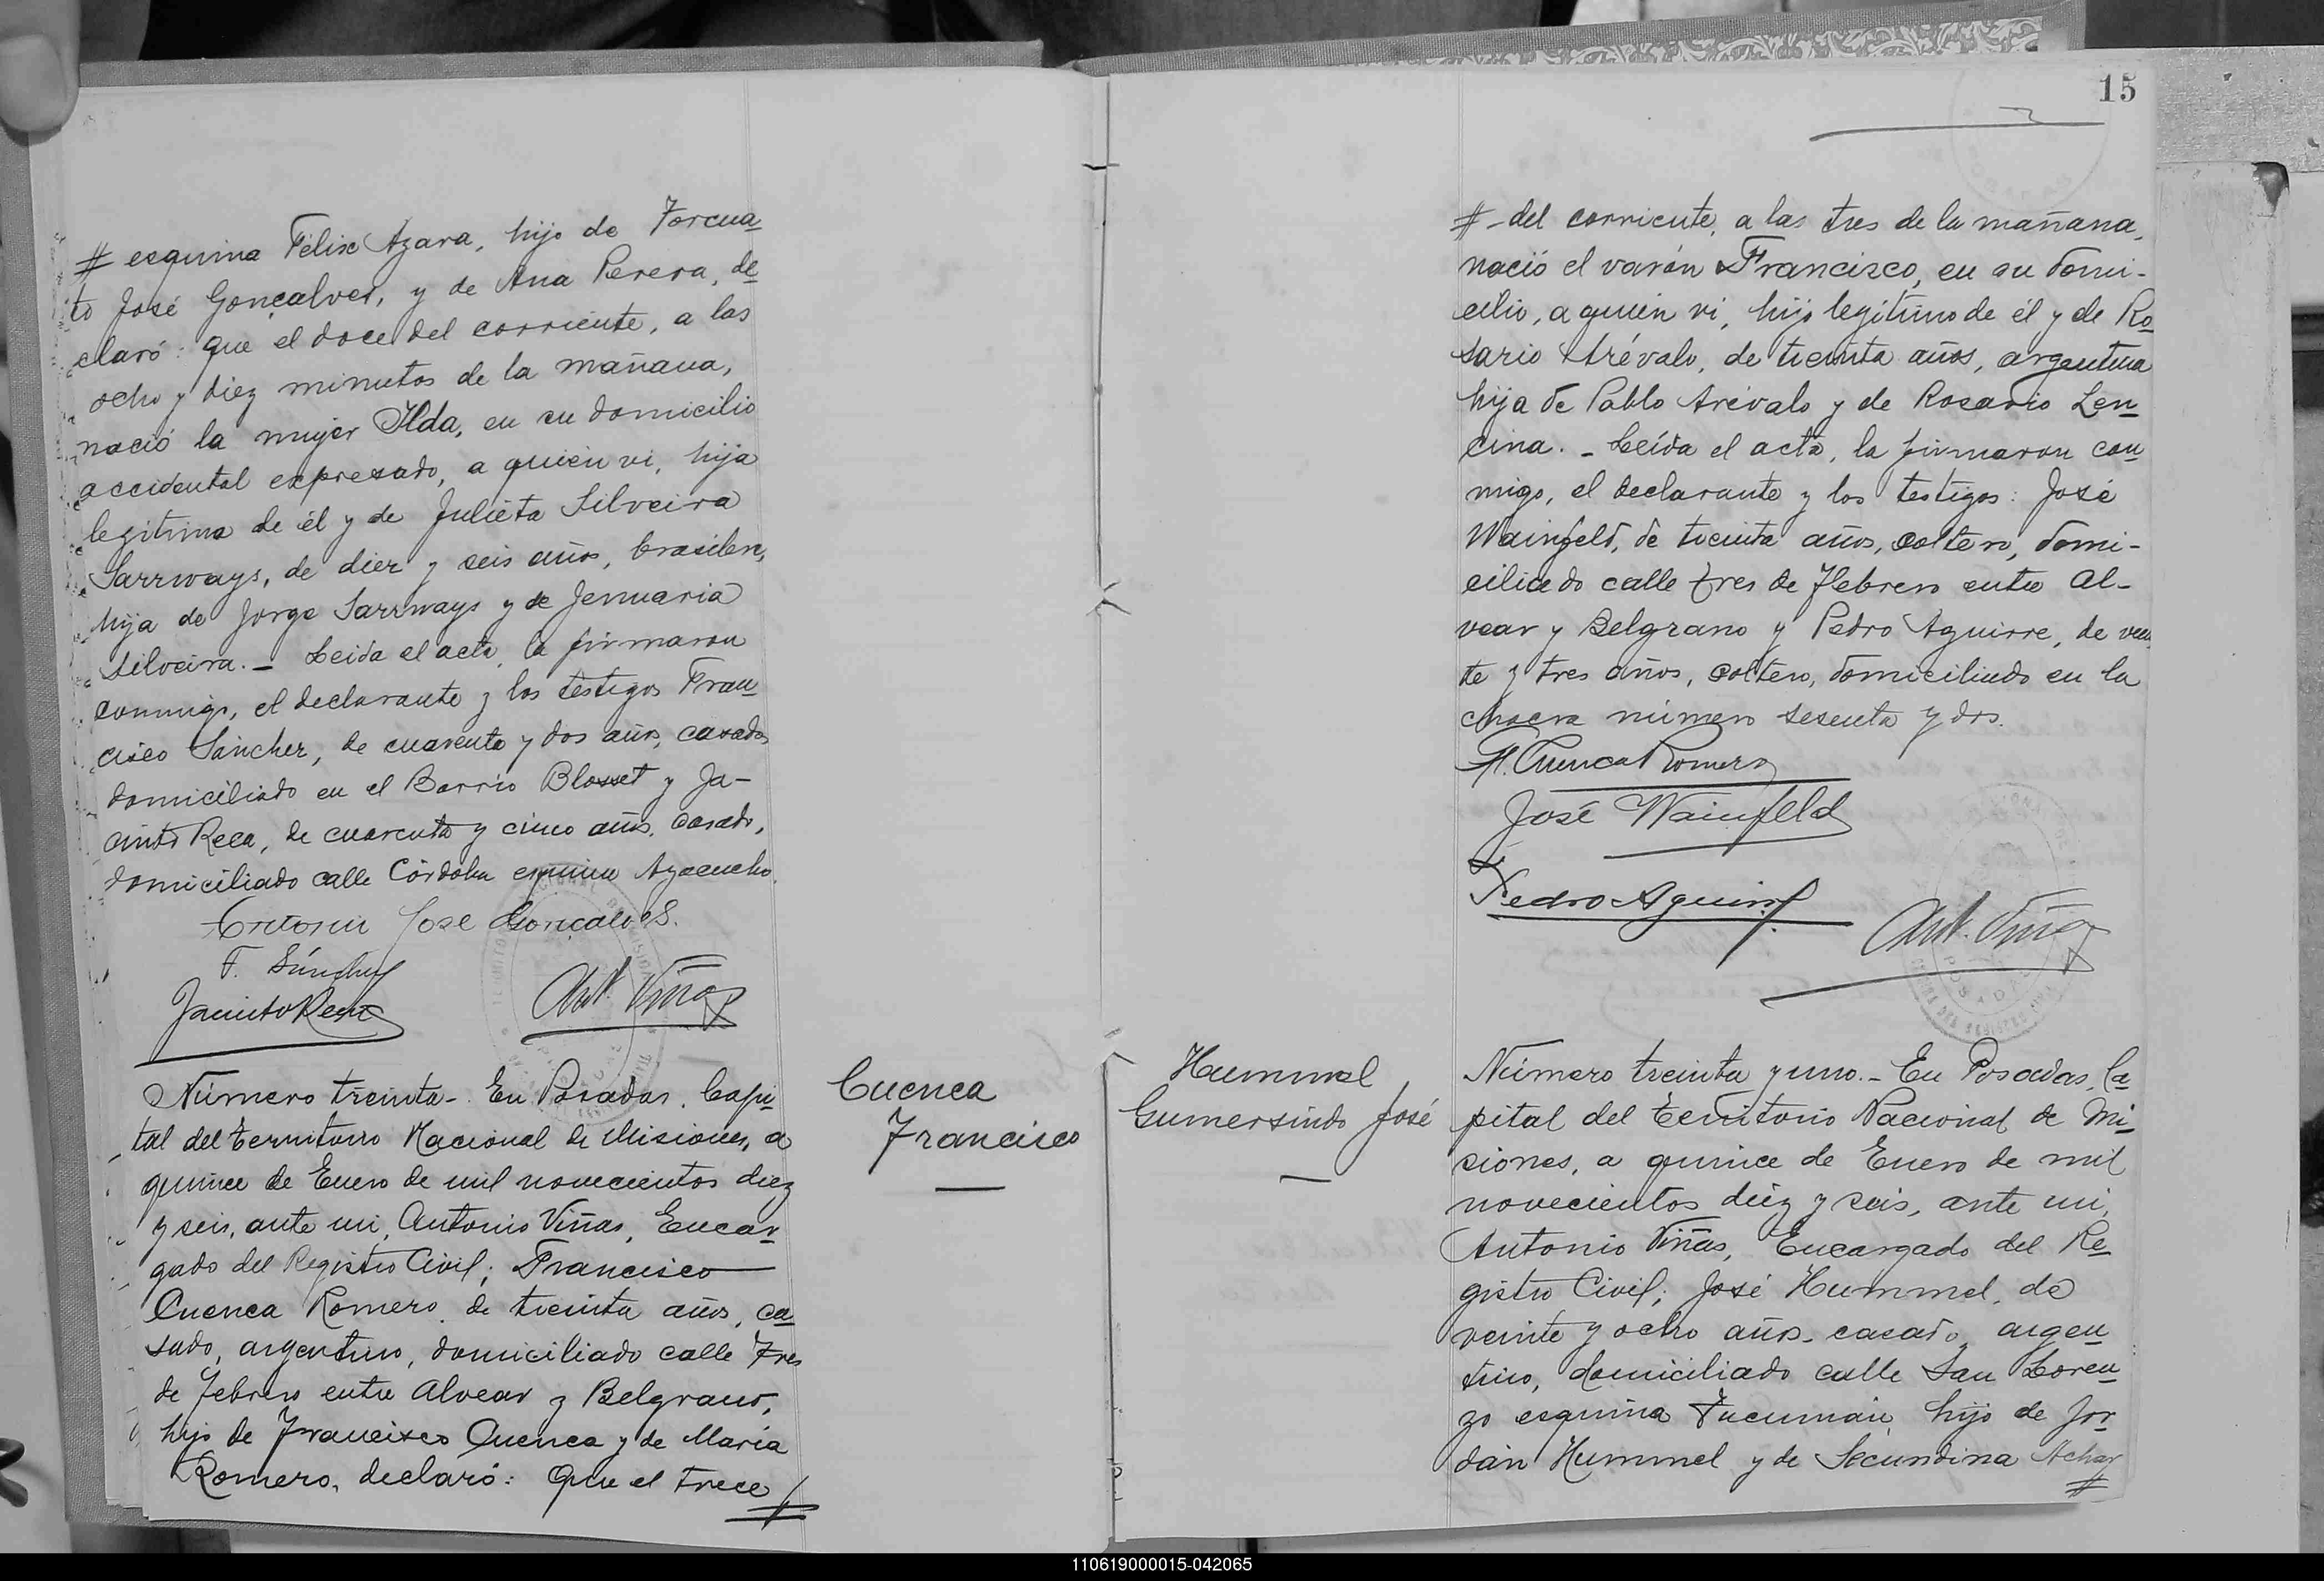 # esquina Felix Azara, hijo de Torcua
to José Gonçalves, y de Ana Perera, de
claró: que el doce del corriente, a las
ocho y diez minutos de la mañana,
nació la mujer Ilda, en su domicilio
accidental expresado, a quien vi, hija
legitima de él y de Julieta Silveira
Sarrways, de diez y seis años, brasilera,
hija de Jorge Sarrways y de Jenuaria
Silveira. - Leida el acta, la firmaron
conmigo, el declarante y los testigos Fran
cisco Sánchez, de cuarenta y dos años, casado,
domiciliado en el Barrio Blosset y Ja-
cinto Reca, de cuarenta y cinco años, casado,
domiciliado calle Córdoba esquina Ayacucho.
José Gonçalves.
F. Sánchez
Jacinto Reca
Ant. Viñas
Número treinta - En Posadas, Capi
tal del territorio Nacional de Misiones, a
quince de Enero de mil novecientos diez
y seis, ante mi, Antonio Viñas, Encar
gado del Registro Civil; Francisco
Cuenca Romero, de treinta años, ca
sado, argentino, domiciliado calle Tres
de Febrero entre Alvear y Belgrano,
hijo de Francisco Cuenca y de María
Romero, declaró: Que el trece #
Cuenca
Francisco
15
# - del corriente, a las tres de la mañana,
nació el varón Francisco, en su domi-
cilio, a quien vi, hijo legítimo de él y de Ro
sario Arévalo, de treinta años, argentina
hija de Pablo Arévalo y de Rosario Len
cina. - Leída el acta, la firmaron con
migo, el declarante y los testigos: José
Wainfeld, de treinta años, soltero, domi-
ciliado calle tres de Febrero entre Al-
vear y Belgrano y Pedro Aguirre, de vein
te y tres años, soltero, domiciliado en la
chacra número sesenta y dos.
F. Cuenca Romero
José Wainfeld
Pedro Aguirre
Ant. Viñas
POSADAS
Hummel
Gumersindo José
Número treinta y uno. - En Posadas, Ca
pital del Territorio Nacional de Mi
siones, a quince de Enero de mil
novecientos diez y seis, ante mi,
Antonio Viñas, Encargado del Re
gistro Civil; José Hummel, de
veinte y ocho años, casado, argen
tino, domiciliado calle San Loren
zo esquina Tucumán, hijo de Jor
dán Hummel y de Secundina Achar
#
110619000015-042065